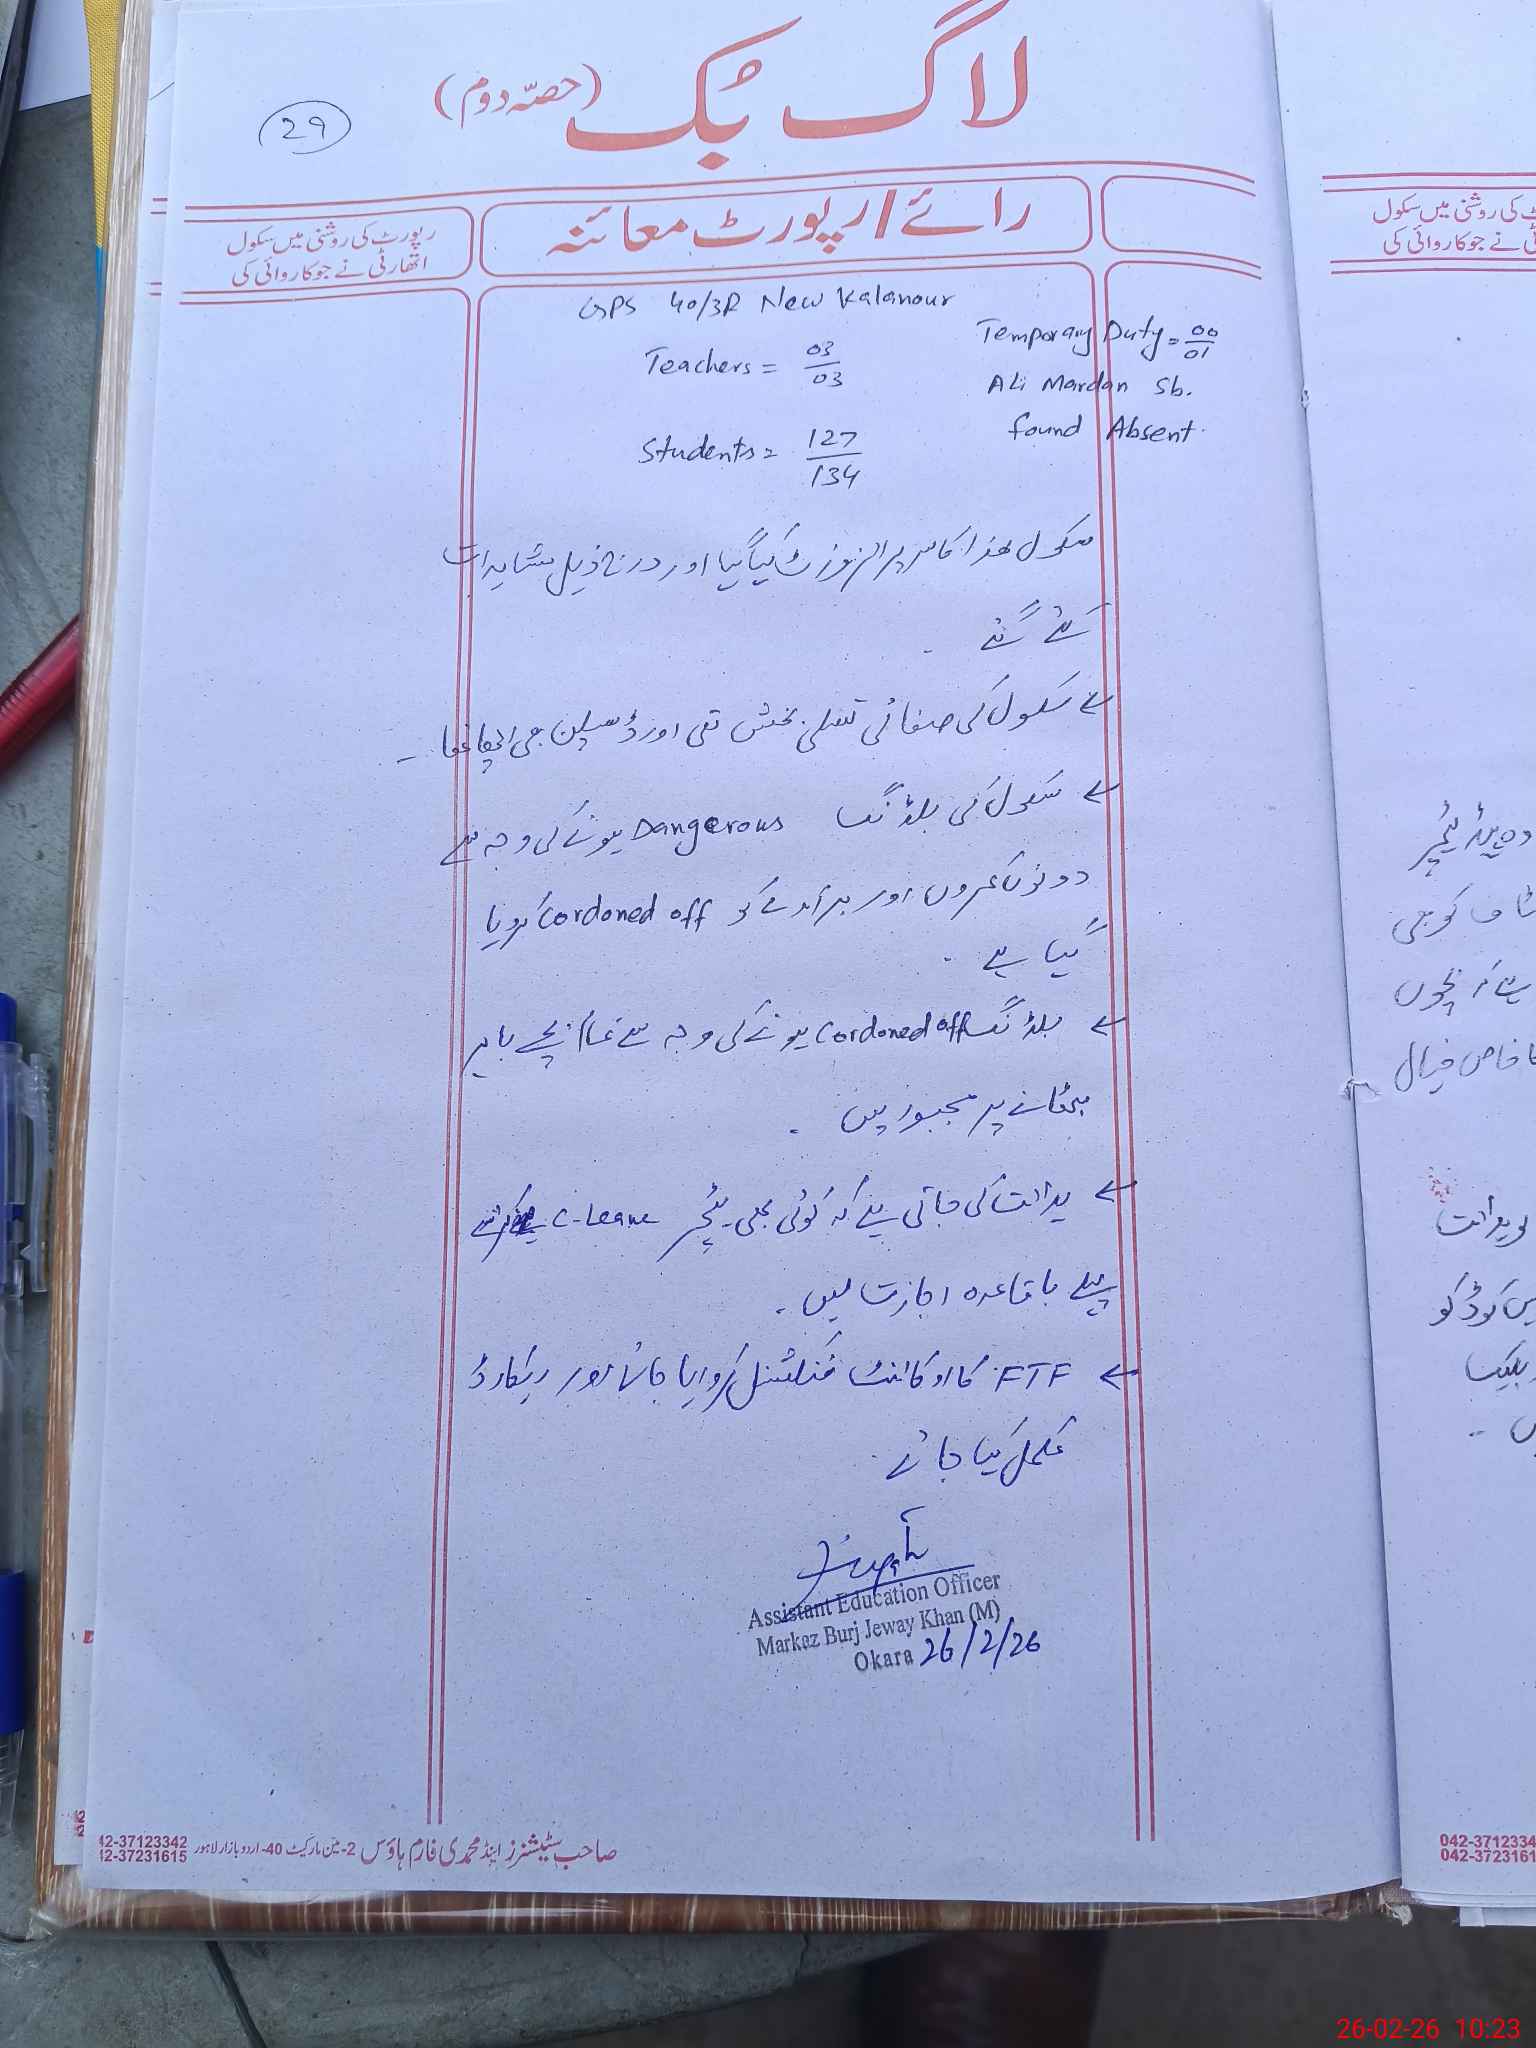 لاگ بک (حصّہ دوم)
29
رائے / رپورٹ معائنہ
رپورٹ کی روشنی میں سکول
اتھارٹی نے جو کاروائی کی
GPS 40/3R New Kalanour
Teachers = 03/03
Temporary Duty = 00/01
Ali Mardan Sb.
found Absent.
Students = 127/134
سکول ھذا کا سرپرائز وزٹ کیا گیا اور درج ذیل مشاہدات
کئے گئے ۔
← سکول کی صفائی تسلی بخش تھی اور ڈسپلن بھی اچھا تھا ۔
← سکول کی بلڈنگ Dangerous ہونے کی وجہ سے
دونوں کمروں اور برآمدے کو Cordoned off کر دیا
گیا ہے ۔
← بلڈنگ Cordoned off ہونے کی وجہ سے تمام بچے باہر
بٹھانے پر مجبور ہیں ۔
← ہدائت کی جاتی ہے کہ کوئی بھی ٹیچر C-Leave سے
پہلے باقاعدہ اجازت لیں ۔
← FTF کا اوکائنٹ فنکشنل کروایا جائے اور ریکارڈ
مکمل کیا جائے
Assistant Education Officer
Markaz Burj Jeway Khan (M)
Okara 26/2/26
صاحب سٹیشنرز اینڈ محمدی فارم ہاؤس 2-مین مارکیٹ 40-اردو بازار لاہور
42-37123342
12-37231615
رپورٹ کی روشنی میں سکول
نے جو کاروائی کی
کو بھی
بچوں
خاص خیال
ہدائت
کوڈ کو
042-3712334
042-3723161
26-02-26 10:23